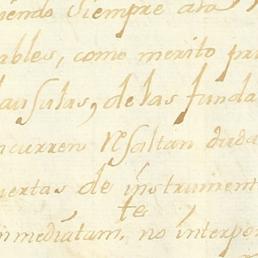 iendo siempre
ables, como merito pri
lausulas, de las funda
ncurren resaltan duda
uertas de instrument
te
nmediatam, no interpo